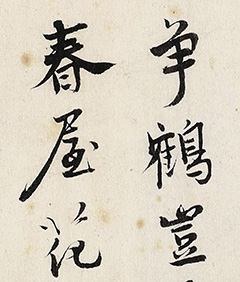 争鶴豈
春屋花